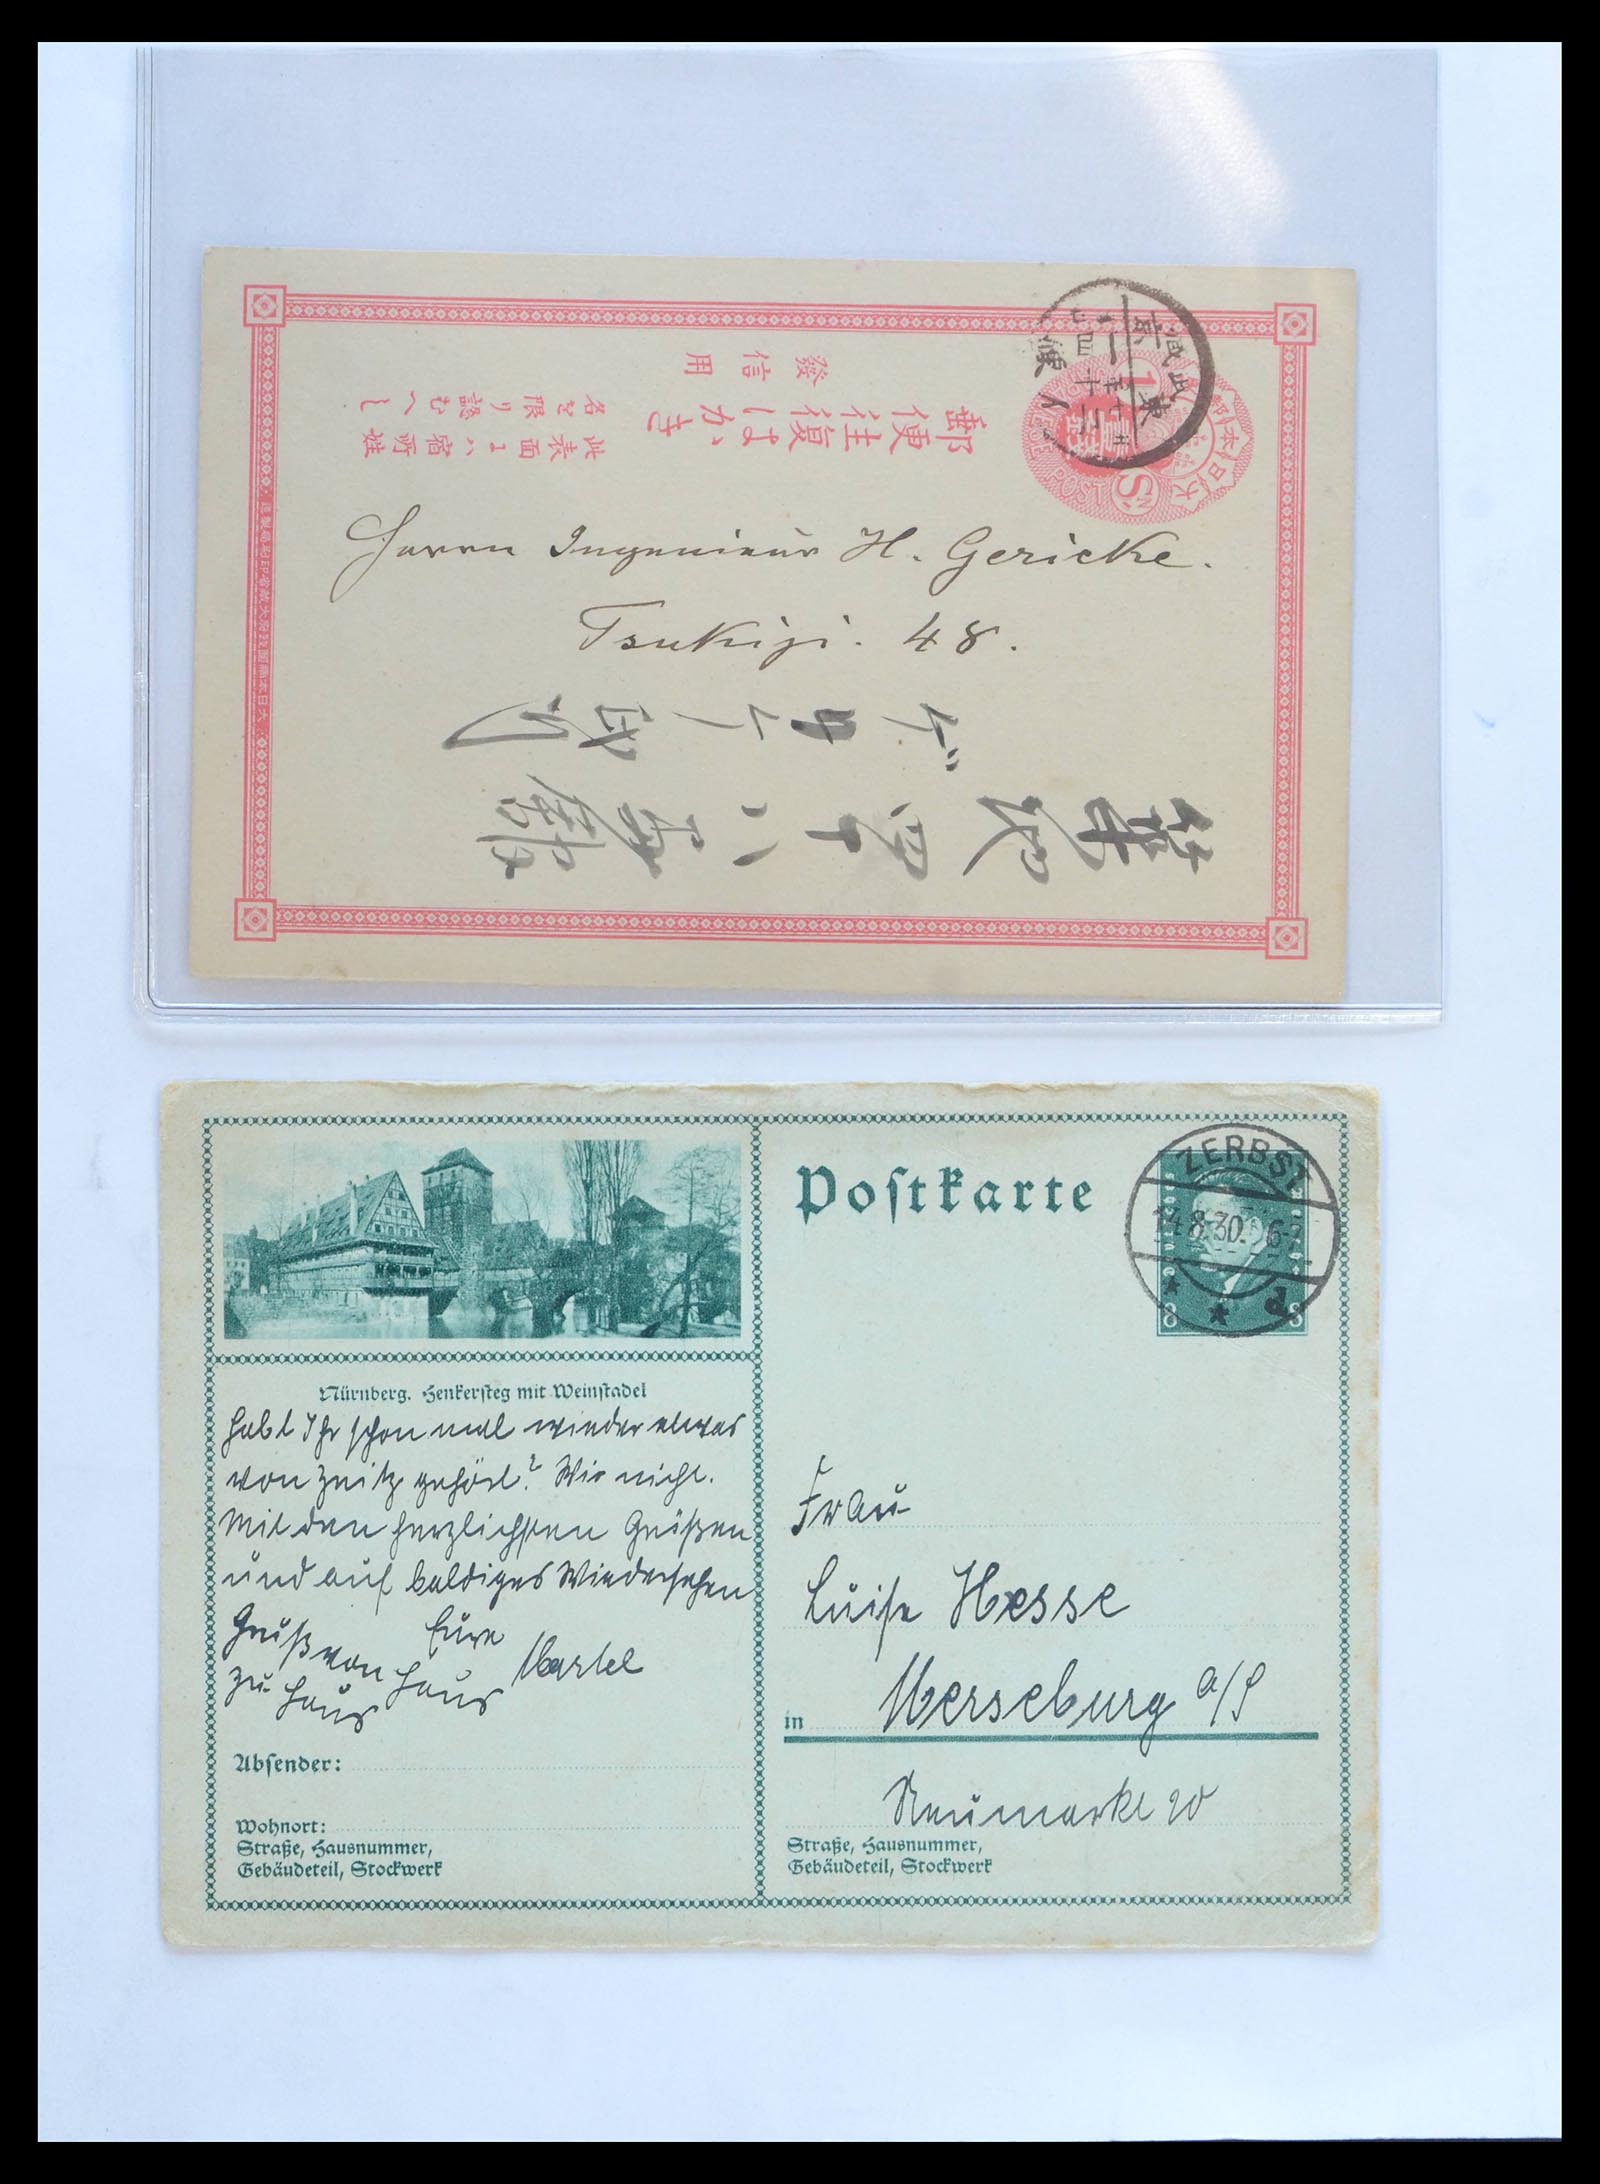 發信用
郵便往復はがき
此表面ヱハ宿所姓
名を限り認むへし
大日本
1 SN
東京
武蔵
Herrn Ingenieur H. Gericke.
Tsukiji. 48.
築地四十八番館
ゲリケー殿
Postkarte
ZERBST
14.8.30. 6-7
* * d
8 8
Nürnberg. Henkersteg mit Weinstadel
Habt Ihr schon mal wieder etwas
von Zeitz gehört? Wir nicht.
Mit den herzlichsten Grüßen
und auf baldiges Wiedersehen
Eure
Martel
Gruß von
Haus
zu Haus
Absender:
Wohnort:
Straße, Hausnummer,
Gebäudeteil, Stockwerk
Frau
Luise Hesse
in Merseburg a/S
Neumarkt 20
Straße, Hausnummer,
Gebäudeteil, Stockwerk